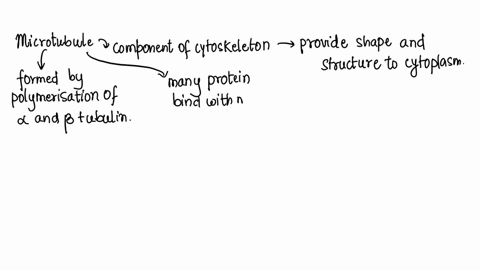 Microtubule → component of cytoskeleton → provide shape and
structure to cytoplasm.
formed by
polymerisation of
α and β tubulin.
many protein
bind with n